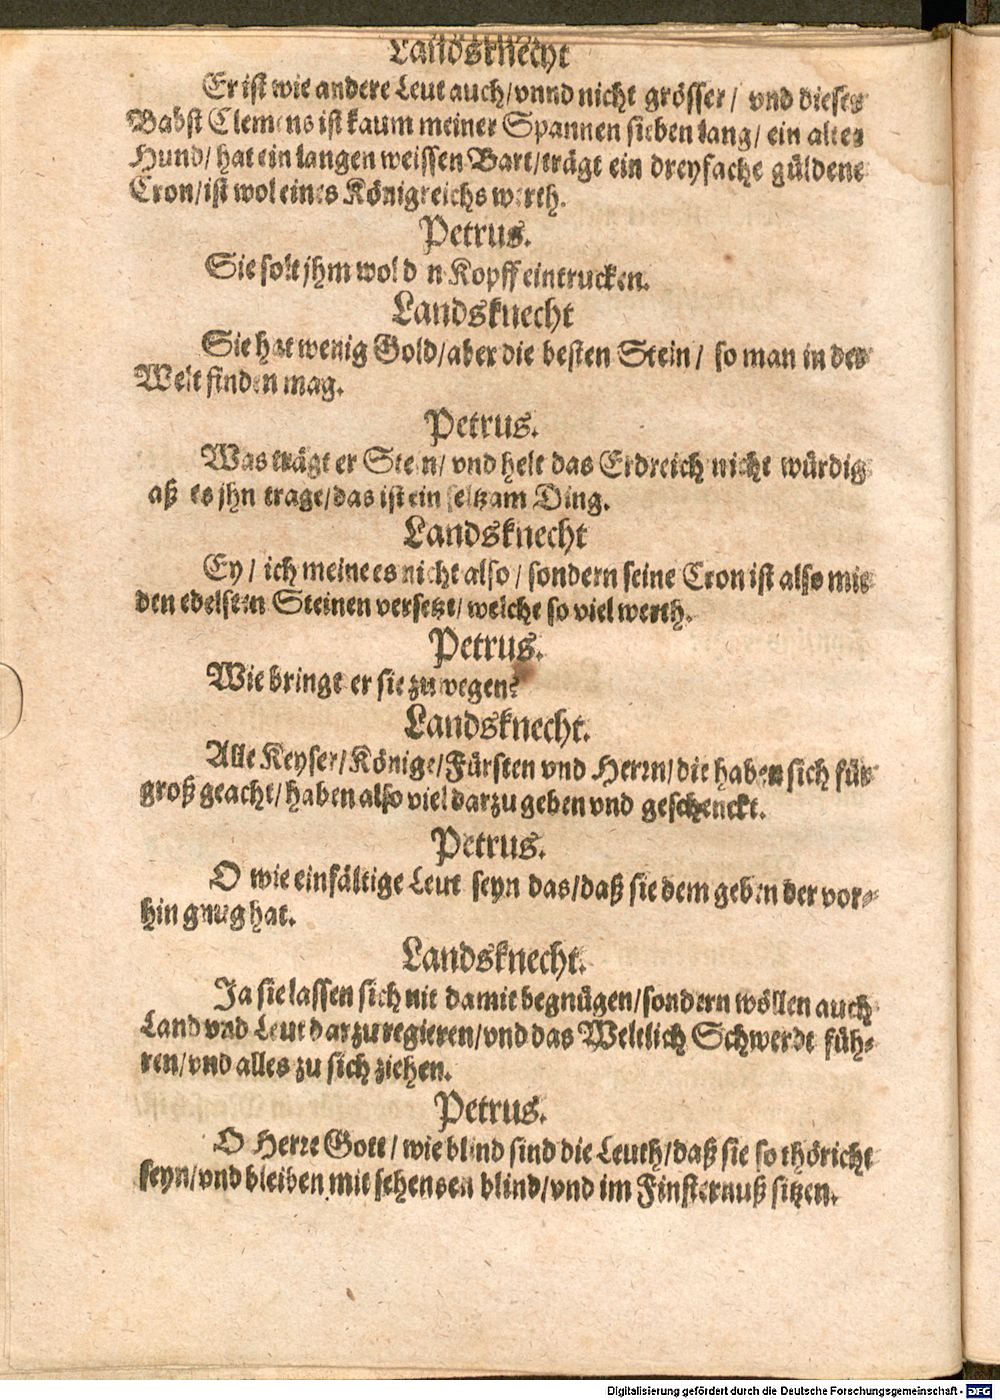 Landsknecht
Er ist wie andere Leut auch/vnnd nicht grösser/ vnd dieser
Babst Clemens ist kaum meiner Spannen sieben lang/ ein alter
Hund/ hat ein langen weissen Bart/trägt ein dreyfache güldene
Cron/ist wol eines Königreichs werth.
Petrus.
Sie solt jhm wol den Kopff eintrucken.
Landsknecht
Sie hat wenig Gold/aber die besten Stein/ so man in der
Welt finden mag.
Petrus.
Was trägt er Stein/ vnd helt das Erdreich nicht würdig
aß es jhn trage/das ist ein seltzam Ding.
Landsknecht
Ey/ ich meine es nicht also/ sondern seine Cron ist also mit
den edelsten Steinen versetzt/ welche so viel werth.
Petrus.
Wie bringt er sie zu wegen?
Landsknecht.
Alle Keyser/Könige/Fürsten vnd Herrn/die haben sich für
groß geacht/haben also viel darzu geben vnd geschenckt.
Petrus.
O wie einfältige Leut seyn das/daß sie dem geben der vor-
hin gnug hat.
Landsknecht.
Ja sie lassen sich nit damit begnügen/sondern wöllen auch
Land vnd Leut darzu regieren/vnd das Weltlich Schwerdt füh-
ren/vnd alles zu sich ziehen.
Petrus.
O Herre Gott/ wie blind sind die Leuth/daß sie so thöricht
seyn/vnd bleiben mit sehenden blind/vnd im Finsternuß sitzen.
Digitalisierung gefördert durch die Deutsche Forschungsgemeinschaft - DFG